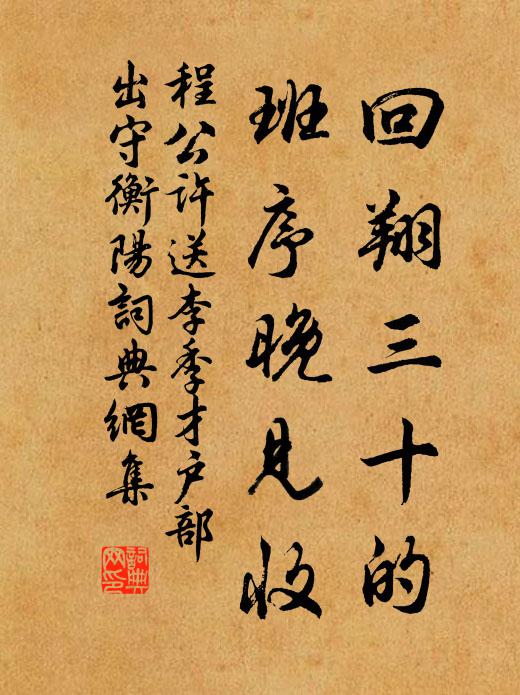 回翔三十的
班序晚見收
程公許送李季才戶部
出守衡陽詞典網集
詞典
网印